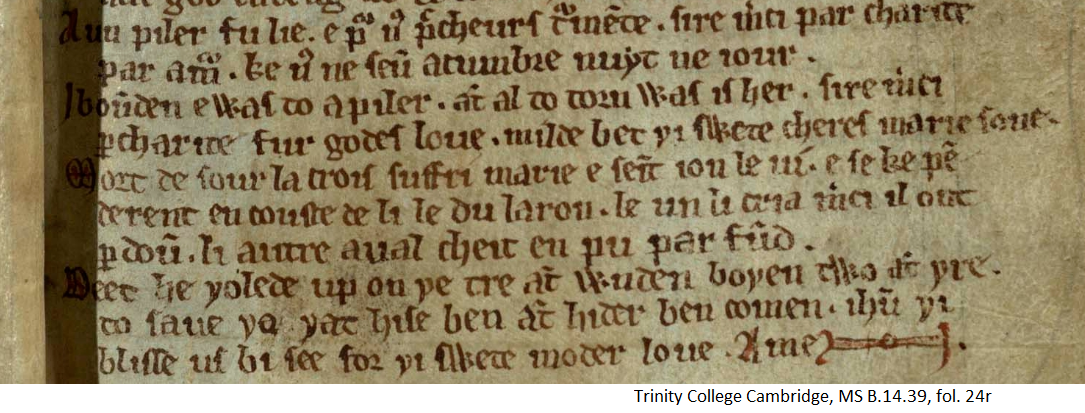 Auu piler fu lie. e pͣ uͦ p̄cheurs tͣmēte. sire m̄ci par charite
par amͬ. ke uͦ ne seū acumbre nuyt ne iour.
Ibōuden e was to a piler. at̄ al to toru was is her. sire m̄ci
ꝑ charite fur godes loue. milde bet yi swete cheres marie sone.
Mort de sour la crois suffri marie e seīt iou le ui. e se ke pē
derent en couste de li le du larou. le un li cria m̄ci il out
ꝑdoū. li autre aual cheit en pu par fūd.
Deet he yolede up on ye tre at̄ wuden boyen two at̄ yre.
to saue yat hise ben at̄ hider ben comen. ihū yi
blisse us bi see for yi swete moder loue. Amen.
Trinity College Cambridge, MS B.14.39, fol. 24r